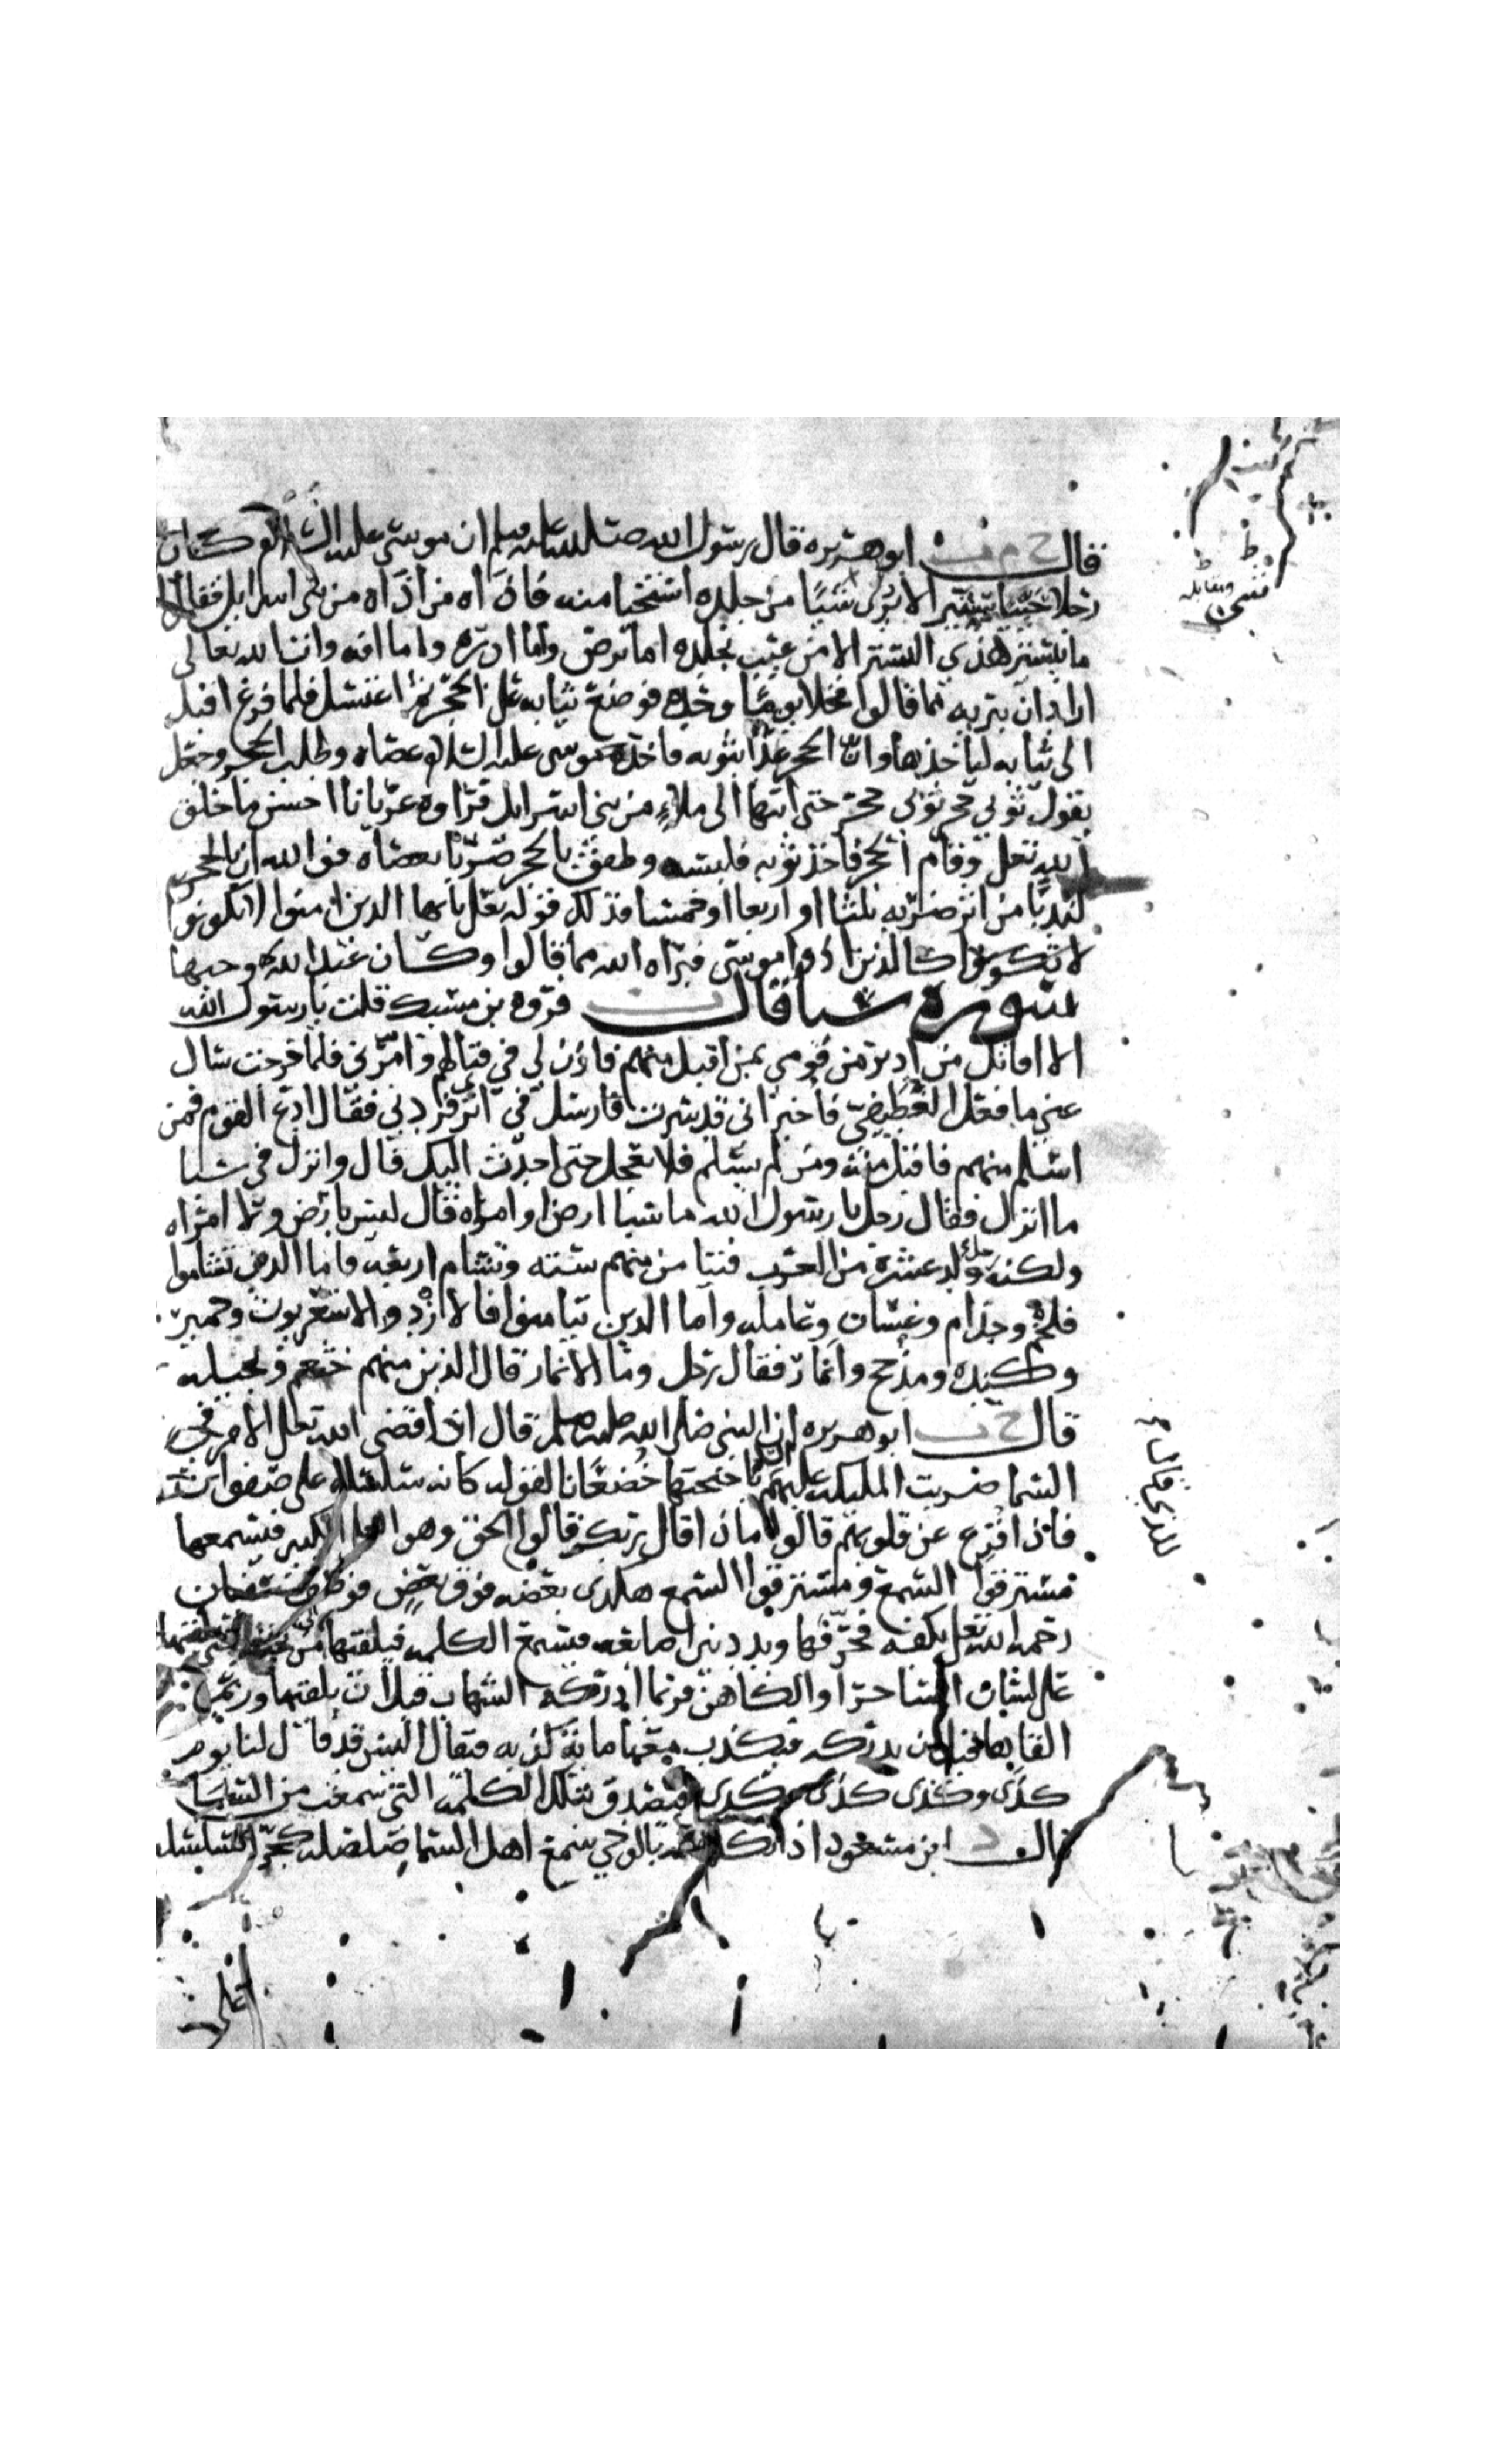 قال خ م ت ابو هريره قال رسول الله صلى الله عليه وسلم ان موسى عليه السلام كان
رجلا حييا ستيرا لا يرى شيئا من جلده استحيا منه فاذاه من اذاه من بني اسرايل فقالوا
ما يستتر هذي الستر الا من عيب بجلده اما برص واما ادره واما افه وان الله تعالى
اراد ان يبريه مما قالوا فخلا يوما وحده فوضع ثيابه على الحجر ثم اغتسل فلما فرغ اقبل
الى ثيابه لياخذها وان الحجر عدا بثوبه فاخذ موسى عليه السلام عصاه وطلب الحجر وجعل
يقول ثوبي حجر ثوبي حجر حتى انتها الى ملاء من بني اسرايل فراوه عريانا احسن ما خلق
الله تعلى وقام الحجر فاخذ ثوبه فلبسه وطفق بالحجر ضربا بعصاه فوالله ان بالحجر
لندبا من اثر ضربه ثلثا او اربعا او خمسا فذلك قوله تعلى يايها الذين امنوا لا تكونوا
لا تكونوا كالذين اذوا موسى فبراه الله مما قالوا وكان عند الله وجيها
سوره سبا قال ت فروه بن مسيك قلت يا رسول الله
الا اقاتل من ادبر من قومي بمن اقبل منهم فاذن لي في قتالهم وامرني فلما خرجت سال
عني ما فعل الغطيفي فاخبر اني قد سرت فارسل في اثري فردني فقال ادع القوم فمن
اسلم منهم فاقبل منه ومن لم يسلم فلا تعجل حتى احدث اليك قال وانزل في سبا
ما انزل فقال رجل يا رسول الله ما سبا ارض او امراه قال ليس بارض ولا امراه
ولكنه رجل ولد عشرة من العرب فتيا من منهم سته وتشام اربعه فاما الذين تشاموا
فلخم وجذام وغسان وعامله واما الذين تيامنوا فالازد والاشعريون وحمير
وكنده ومذحج وانمار فقال رجل وما الانمار قال الذين منهم خثعم وبجيله
قال خ ت ابو هريره ان النبي صلى الله عليه وسلم قال اذا قضى الله تعلى الامر في
السما ضربت المليكه عليهم السلام باجنحتها خضعانا لقوله كانه سلسله على صفوان
فاذا فزع عن قلوبهم قالوا ماذا قال ربكم قالوا الحق وهو العلي الكبير فيسمعها
مسترقوا السمع ومسترقوا السمع هكذى بعضه فوق بعض فوصف سفيان
رحمه الله تعلى بكفه فحرفها وبدد بين اصابعه فيسمع الكلمه فيلقيها الى من تحته
على لسان الساحر او الكاهن فربما ادركه الشهاب قبل ان يلقيها وربما
القاها قبل ان يدركه فيكذب معها مايه كذبه فيقال اليس قد قال لنا يوم
كذى وكذى كذى وكذى فيصدق بتلك الكلمه التي سمعت من السما
قال د ابن مسعود اذا تكلم الله بالوحي سمع اهل السما صلصله كجر السلسله